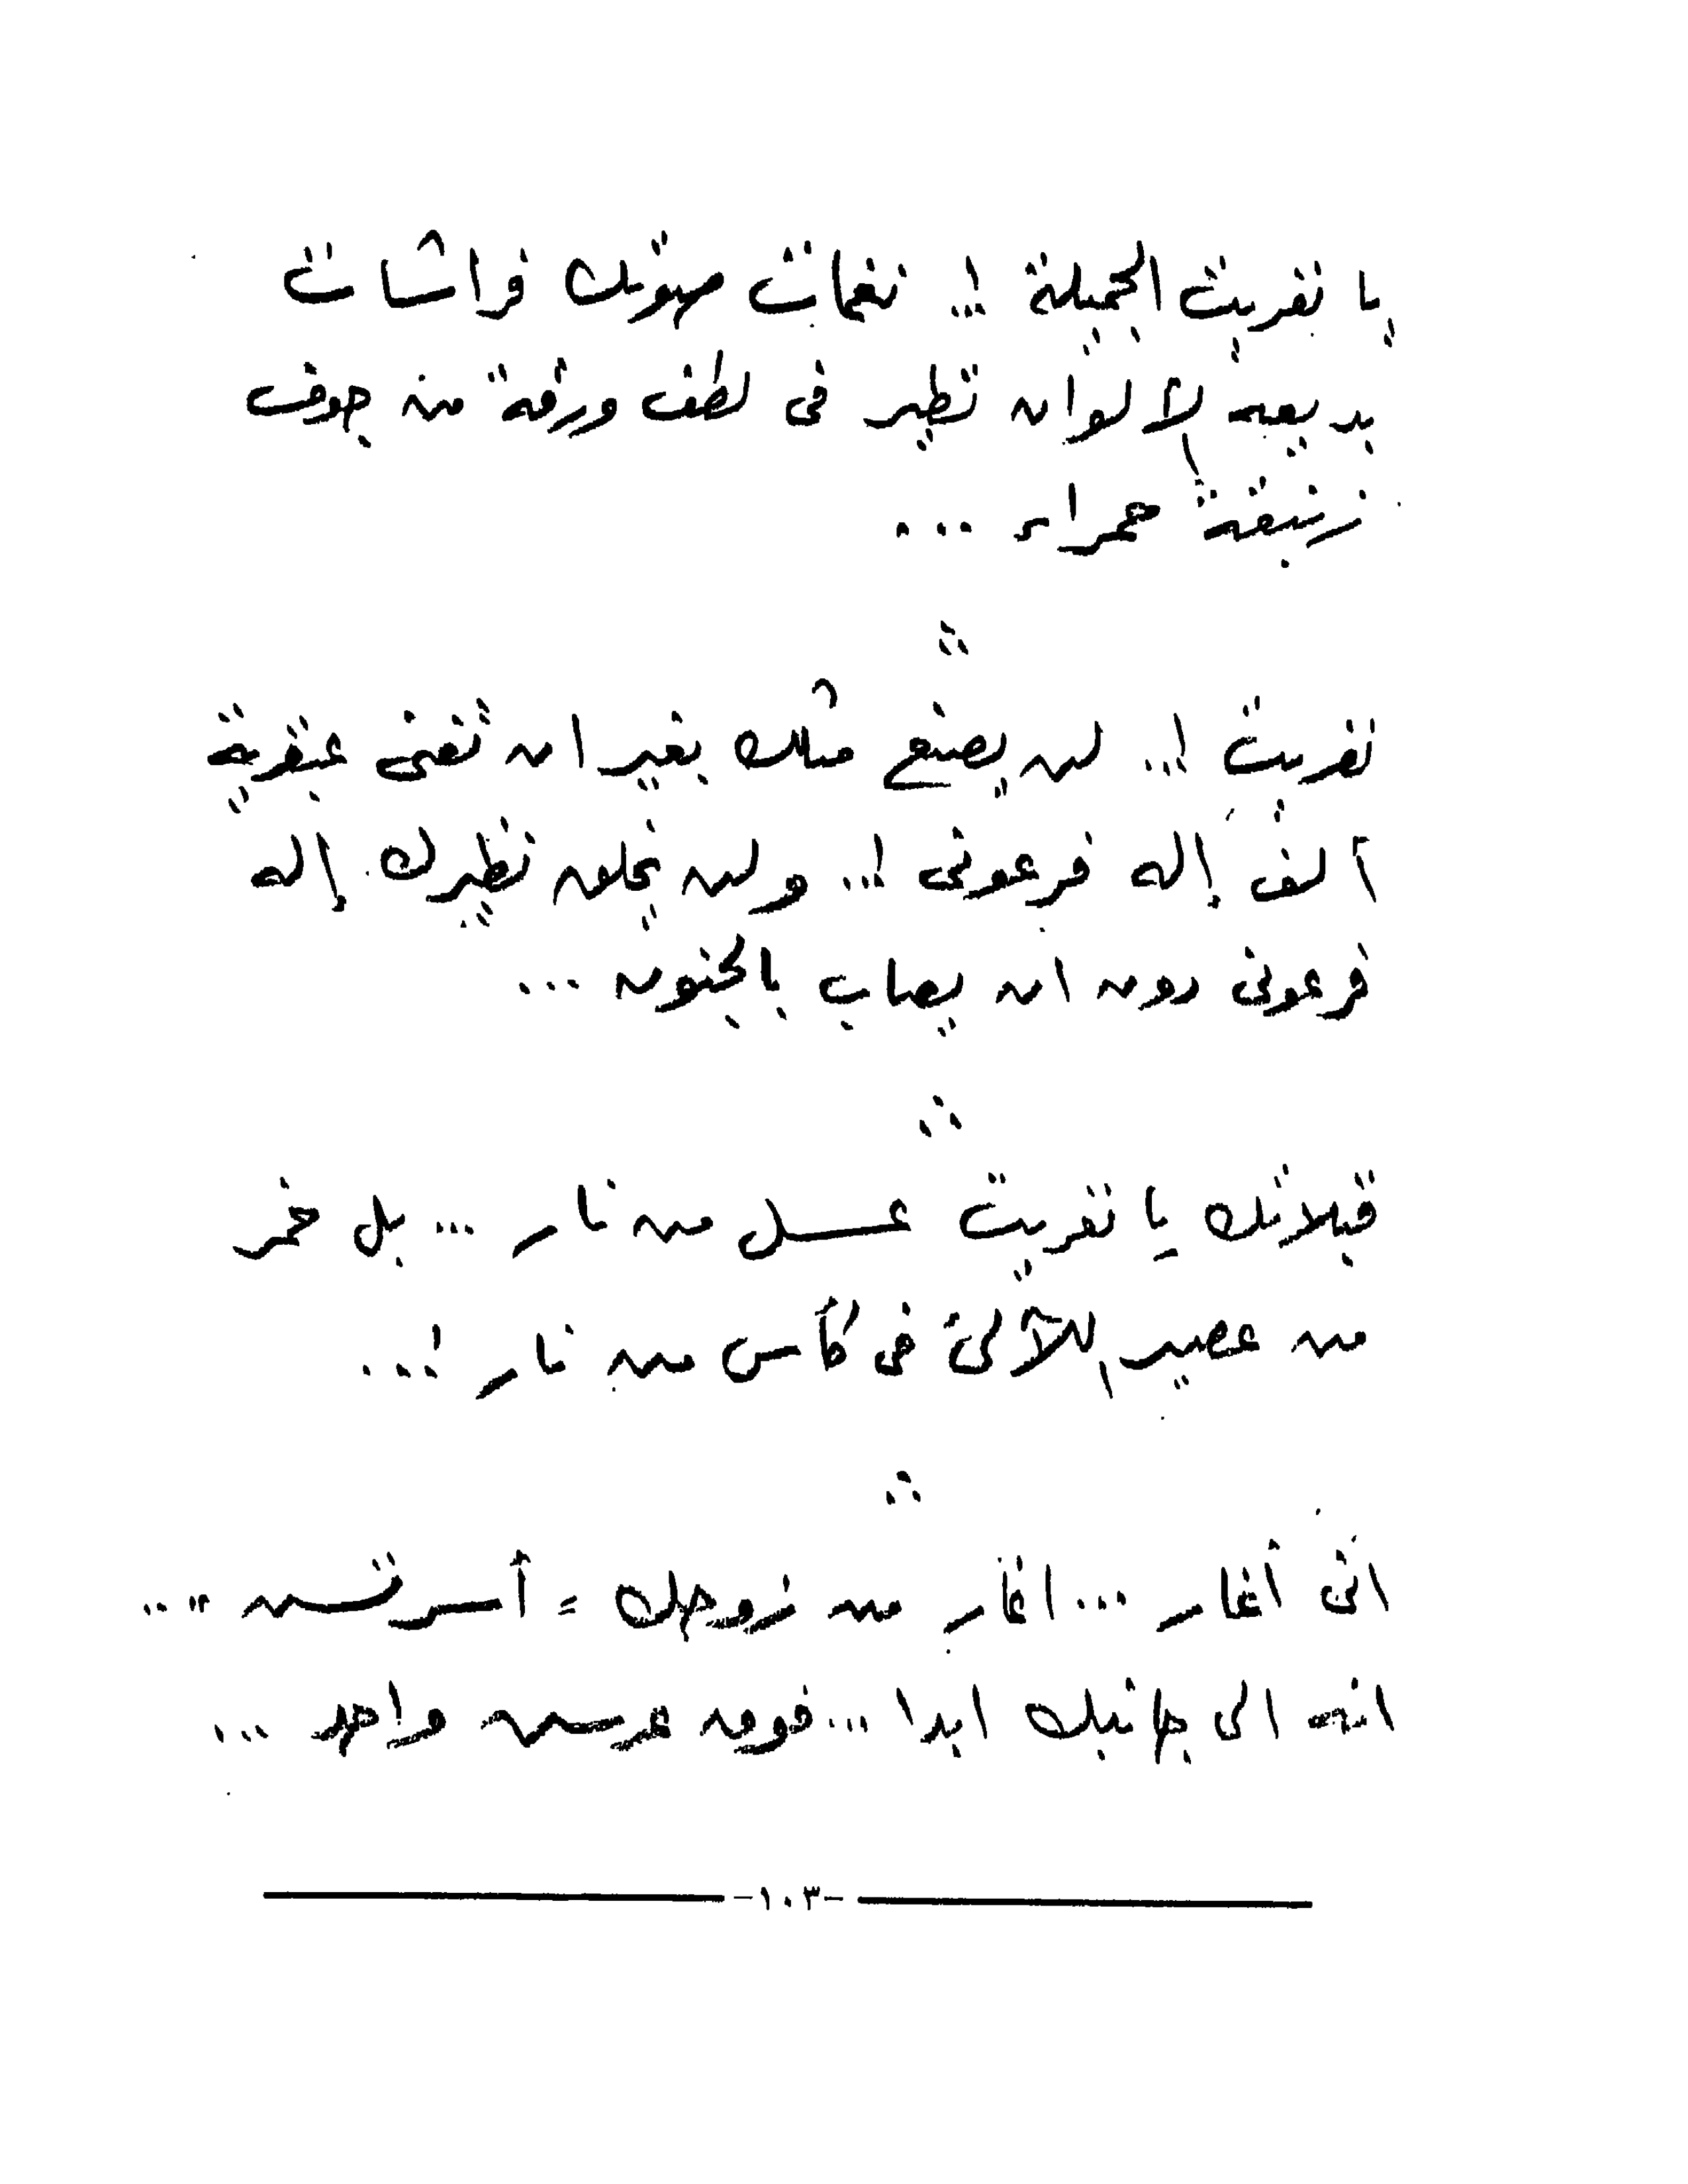 يا نفريت الجميلة !.. نغمات صوتك فراشات
بديعة الالوان تطير فى لطف ورقة من جوف
زنبقة حمراء ...
نفريت !.. لن يصنع مثلك بغير ان تفنى عبقرية
ألف إله فرعونى !.. ولن يخلق نظيرك إله
فرعونى دون ان يصاب بالجنون ...
قبلاتك يا نفريت عسل من نار ... بل خمر
من عصير اللآلئ فى كأس من نار !...
انى أغار ... اغار من زوجك "أسرتسن" ..
انه الى جانبك ابدا ... فوق عرش واحد ...
-١٠٣-